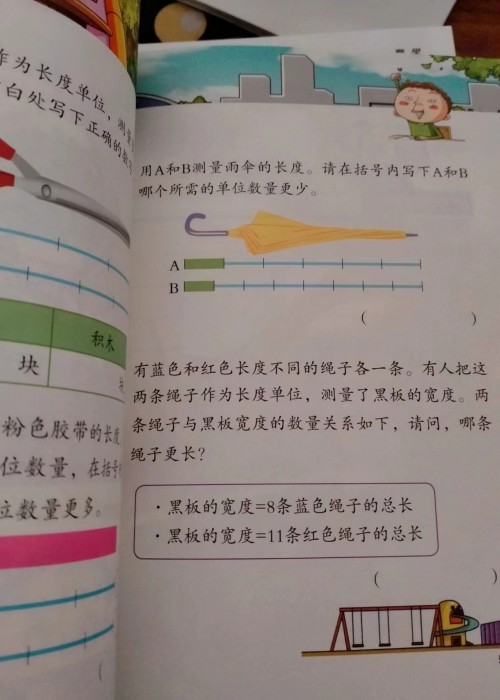 作为长度单位，测量
白处写下正确的
积木
块
粉色胶带的长度
位数量，在括号
位数量更多。
(
用A和B测量雨伞的长度。请在括号内写下A和B
哪个所需的单位数量更少。
A
B
( )
有蓝色和红色长度不同的绳子各一条。有人把这
两条绳子作为长度单位，测量了黑板的宽度。两
条绳子与黑板宽度的数量关系如下，请问，哪条
绳子更长？
·黑板的宽度=8条蓝色绳子的总长
·黑板的宽度=11条红色绳子的总长
( )